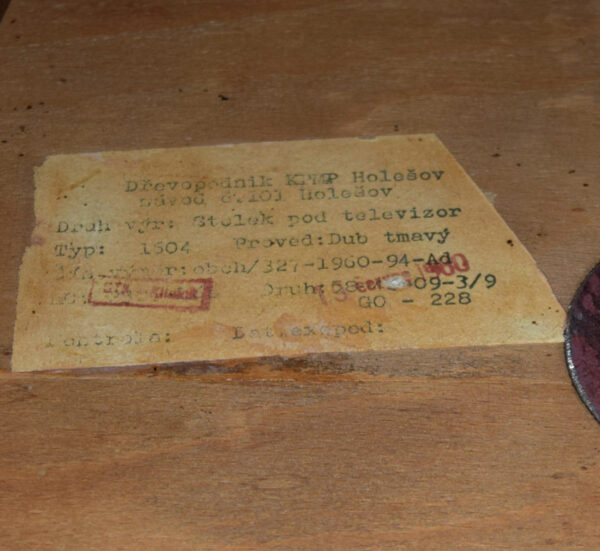 Dřevopodnik KPMP Holešov
závod č.101 Holešov
Druh výr: Stolek pod televizor
Typ: 1504 Proved:Dub tmavý
obch/327-1960-94-Ad
Druh:58 09-3/9
GO - 228
Kontrola: Dat.exped: